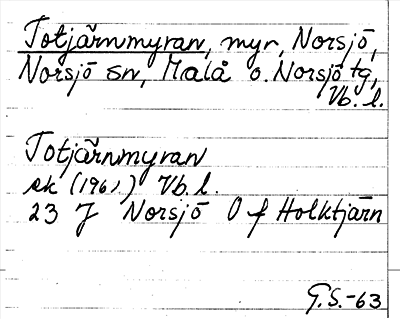 Totjärnmyran, myr, Norsjö,
Norsjö sn, Malå o. Norsjö tg,
Vb. l.
Totjärnmyran
ek (1961) Vb. l.
23 J Norsjö O f Holktjärn
G.S.-63